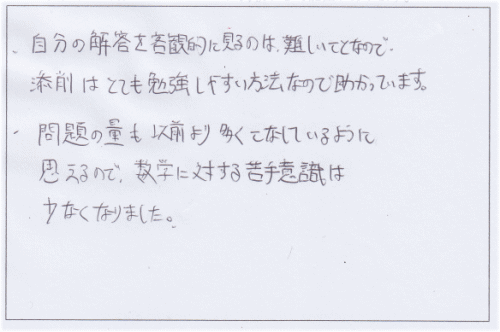 ・自分の解答を客観的に見るのは、難しいことなので、
添削はとても勉強しやすい方法なので助かっています。
・問題の量も以前より多くこなしているように
思えるので、数学に対する苦手意識は
少なくなりました。